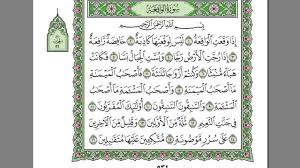 سُورَةُ الْوَاقِعَةِ
بِسْمِ ٱللَّهِ ٱلرَّحْمَٰنِ ٱلرَّحِيمِ
إِذَا وَقَعَتِ ٱلْوَاقِعَةُ ١ لَيْسَ لِوَقْعَتِهَا كَاذِبَةٌ ٢ خَافِضَةٌ رَّافِعَةٌ
٣ إِذَا رُجَّتِ ٱلْأَرْضُ رَجًّا ٤ وَبُسَّتِ ٱلْجِبَالُ بَسًّا ٥ فَكَانَتْ
هَبَآءً مُّنۢبَثًّا ٦ وَكُنتُمْ أَزْوَٰجًا ثَلَٰثَةً ٧ فَأَصْحَٰبُ ٱلْمَيْمَنَةِ
مَآ أَصْحَٰبُ ٱلْمَيْمَنَةِ ٨ وَأَصْحَٰبُ ٱلْمَشْـَٔمَةِ مَآ أَصْحَٰبُ ٱلْمَشْـَٔمَةِ
٩ وَٱلسَّٰبِقُونَ ٱلسَّٰبِقُونَ ١٠ أُو۟لَٰٓئِكَ ٱلْمُقَرَّبُونَ ١١ فِى
جَنَّٰتِ ٱلنَّعِيمِ ١٢ ثُلَّةٌ مِّنَ ٱلْأَوَّلِينَ ١٣ وَقَلِيلٌ مِّنَ ٱلْـَٔاخِرِينَ
١٤ عَلَىٰ سُرُرٍ مَّوْضُونَةٍ ١٥ مُّتَّكِـِٔينَ عَلَيْهَا مُتَقَٰبِلِينَ ١٦
٥٣٤